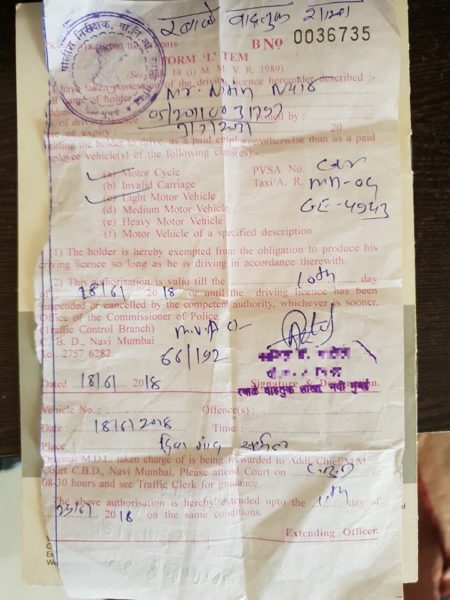 रबाळे वाहतूक शाखा
BNo 0036735
FORM 'L' TEM
14 (i) M. M. V. R. 1989)
I have taken possession of the driving licence hereunder described :-
name of holder Mr. Nitin
of expiry 20
holder to drive as a paid employee/otherwise than as a paid
employee vehicle(s) of the following classes:-
(a) Motor Cycle PVSA No. Car
(b) Invalid Carriage Taxi/A. R. MH-04
(c) Light Motor Vehicle GE-4943
(d) Medium Motor Vehicle
(e) Heavy Motor Vehicle
(f) Motor Vehicle of a specified description
(1) The holder is hereby exempted from the obligation to produce his
driving licence so long as he is driving in accordance therewith.
(2) This authorisation is valid till the 10th day
18/6/ 2018 or until the driving licence has been
suspended or cancelled by the competent authority, whichever is sooner.
Office of the Commissioner of Police
(Traffic Control Branch) M.V.A
C. B. D., Navi Mumbai
Tel. 2757 6282. 66/192
Dated 18/6/ 2018 Signature &
रबाळे वाहतूक शाखा नवी मुंबई
Vehicle No.: Offence(s):
Date : 18/6/2018 Time :
Place :
Original M.D.L. taken charge of is being forwarded to Addl. Chief M.M.
Court C.B.D., Navi Mumbai. Please attend Court on
08-30 hours and see Traffic Clerk for guidance.
The above authorisation is hereby extended upto the day of
2018 on the same conditions.
Extending Officer.